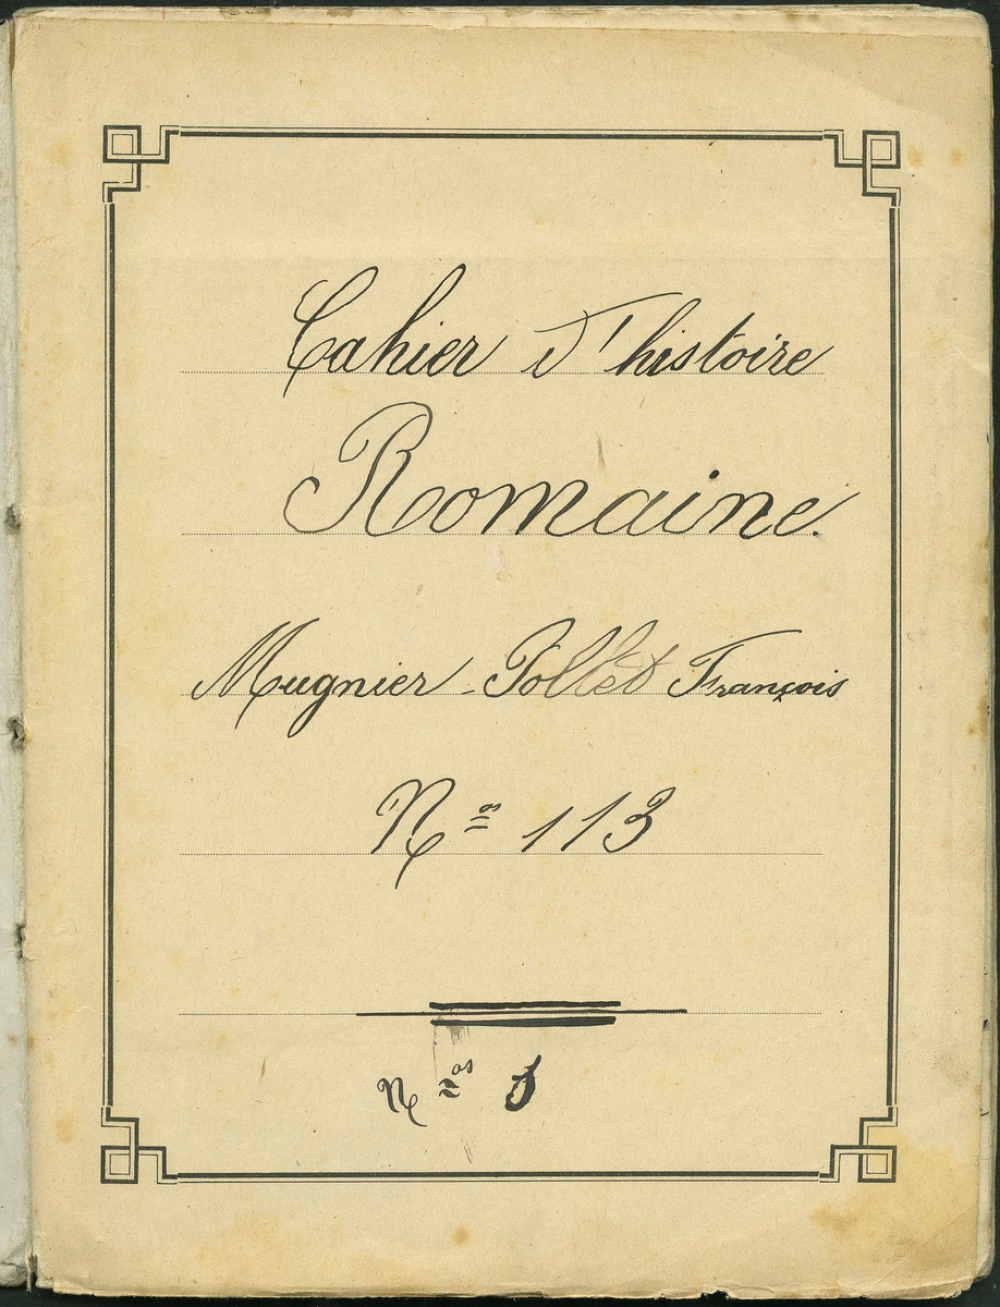 Cahier d'histoire
Romaine.
Mugnier-Pollet François
Nos 113
Nos 1